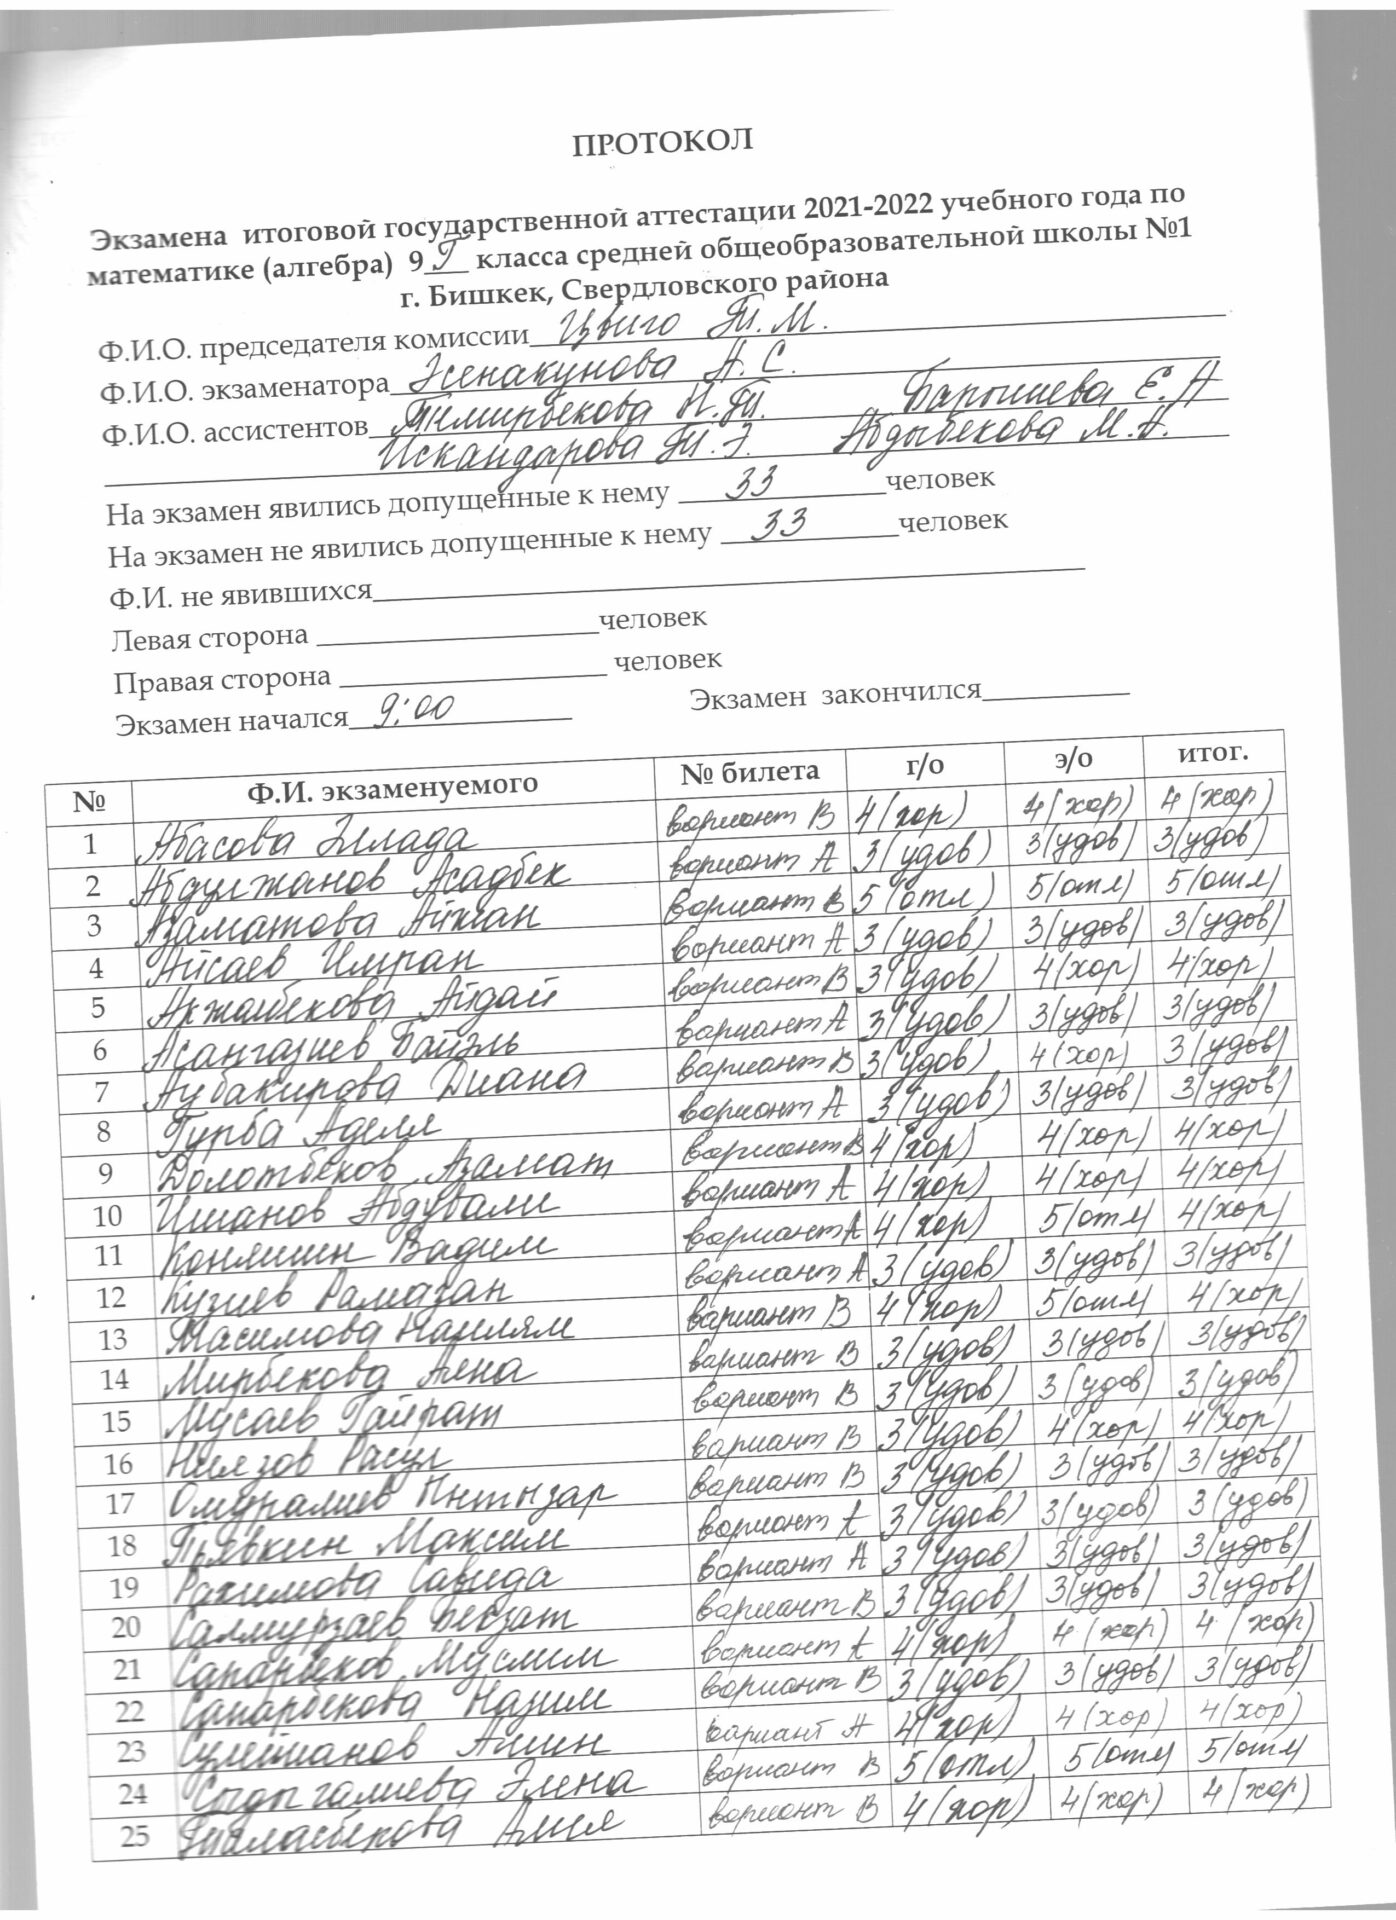 ПРОТОКОЛ
Экзамена итоговой государственной аттестации 2021-2022 учебного года по
математике (алгебра) 9 Г класса средней общеобразовательной школы №1
г. Бишкек, Свердловского района
Ф.И.О. председателя комиссии Цвиго Т.М.
Ф.И.О. экзаменатора Женакунова А.С.
Ф.И.О. ассистентов Темирбекова Н.Т. Барышева Е.А
Искандарова Т.Э. Абдыбекова М.А.
На экзамен явились допущенные к нему 33 человек
На экзамен не явились допущенные к нему 33 человек
Ф.И. не явившихся
Левая сторона человек
Правая сторона человек
Экзамен начался 9:00 Экзамен закончился
№ Ф.И. экзаменуемого № билета г/о э/о итог.
1 Абасова Эллада вариант В 4(хор) 4(хор) 4(хор)
2 Абдулжанов Асадбек вариант А 3(удов) 3(удов) 3(удов)
3 Азаматова Айжан вариант В 5(отл) 5(отл) 5(отл)
4 Айсаев Имран вариант А 3(удов) 3(удов) 3(удов)
5 Акжолбекова Айдай вариант В 3(удов) 4(хор) 4(хор)
6 Асангазиев Байэль вариант А 3(удов) 3(удов) 3(удов)
7 Аубакирова Диана вариант В 3(удов) 4(хор) 3(удов)
8 Гурба Аделя вариант А 3(удов) 3(удов) 3(удов)
9 Долотбеков Азамат вариант В 4(хор) 4(хор) 4(хор)
10 Ишанов Абдували вариант А 4(хор) 4(хор) 4(хор)
11 Коняшин Вадим вариант А 4(хор) 5(отл) 4(хор)
12 Кузиев Рамазан вариант А 3(удов) 3(удов) 3(удов)
13 Масимова вариант В 4(хор) 5(отл) 4(хор)
14 Мирбекова вариант В 3(удов) 3(удов) 3(удов)
15 Мусаев Гайрат вариант В 3(удов) 3(удов) 3(удов)
16 Ниязов Расул вариант В 3(удов) 4(хор) 4(хор)
17 Омуралиев Ынтызар вариант В 3(удов) 3(удов) 3(удов)
18 Пьявкин Максим вариант А 3(удов) 3(удов) 3(удов)
19 Рахимова вариант А 3(удов) 3(удов) 3(удов)
20 Салмурзаев Бекзат вариант В 3(удов) 3(удов) 3(удов)
21 Сапарбеков Муслим вариант А 4(хор) 4(хор) 4(хор)
22 Сапарбекова Назим вариант В 3(удов) 3(удов) 3(удов)
23 Сулейманов Амин вариант А 4(хор) 4(хор) 4(хор)
24 Сыдыгалиева Элена вариант В 5(отл) 5(отл) 5(отл)
25 Толласбекова вариант В 4(хор) 4(хор) 4(хор)